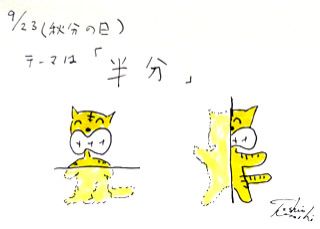 9/23(秋分の日)
テーマは「半分」